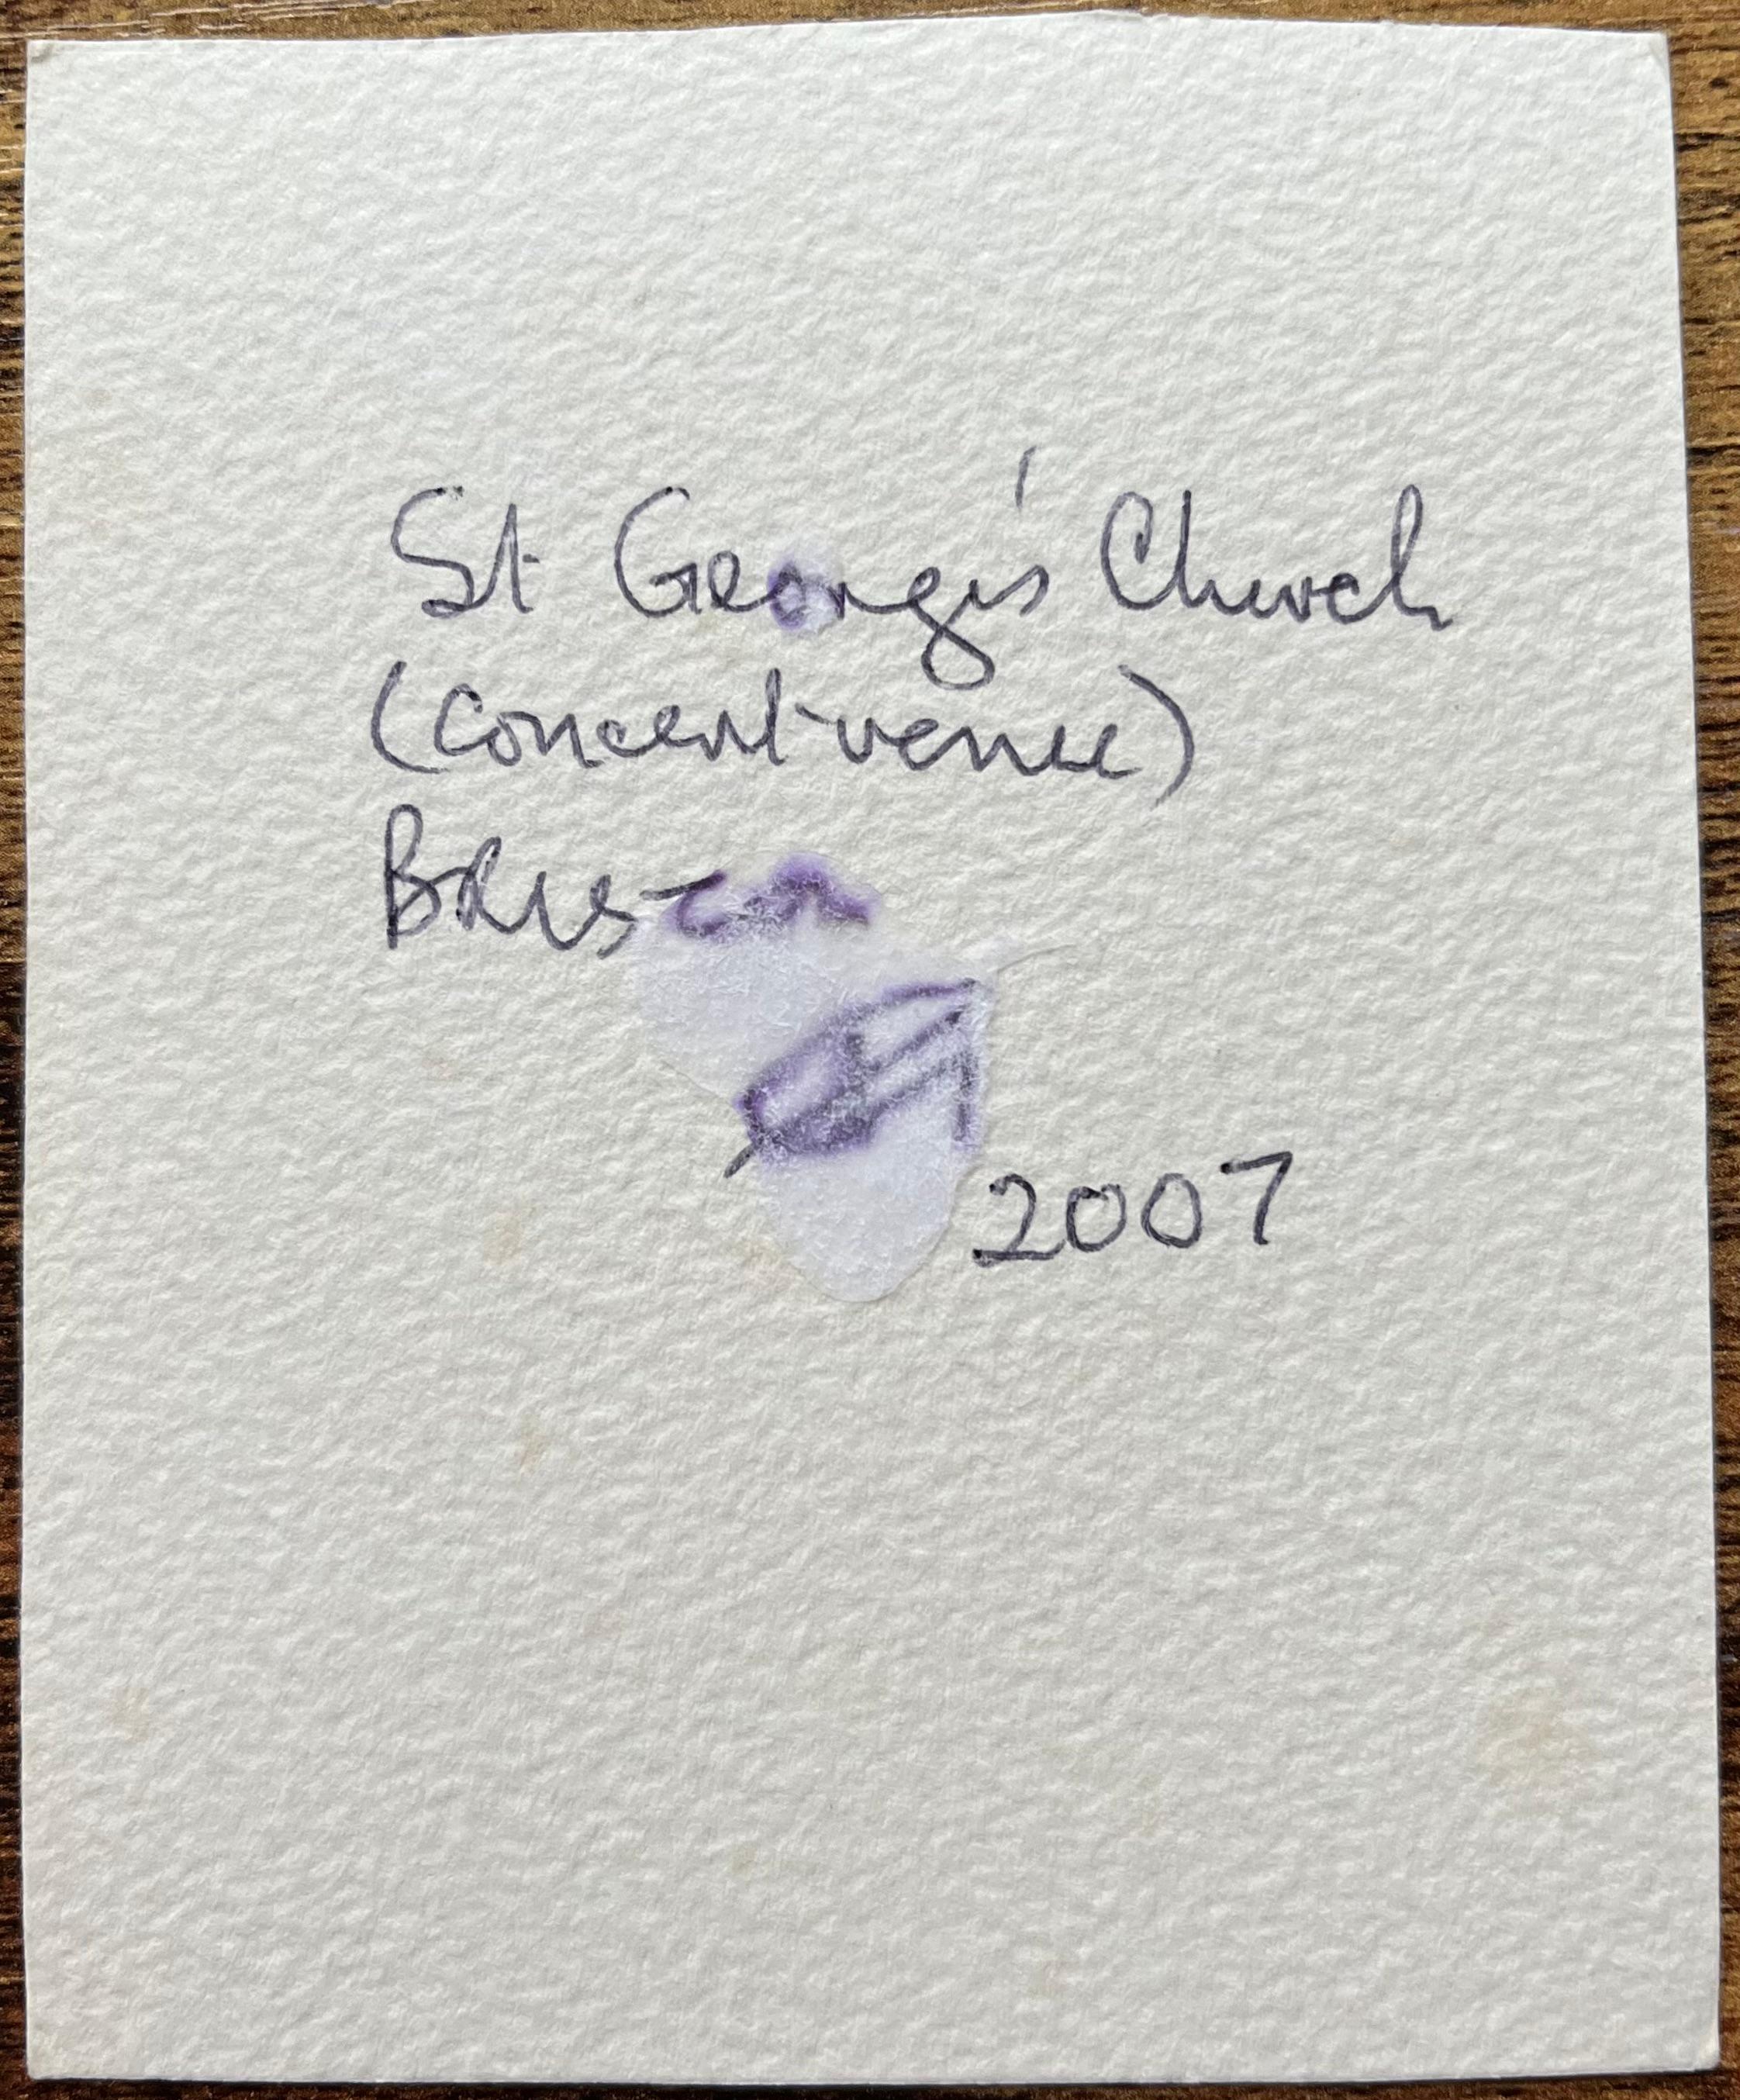 St George's Church
(concert-venue)
2007